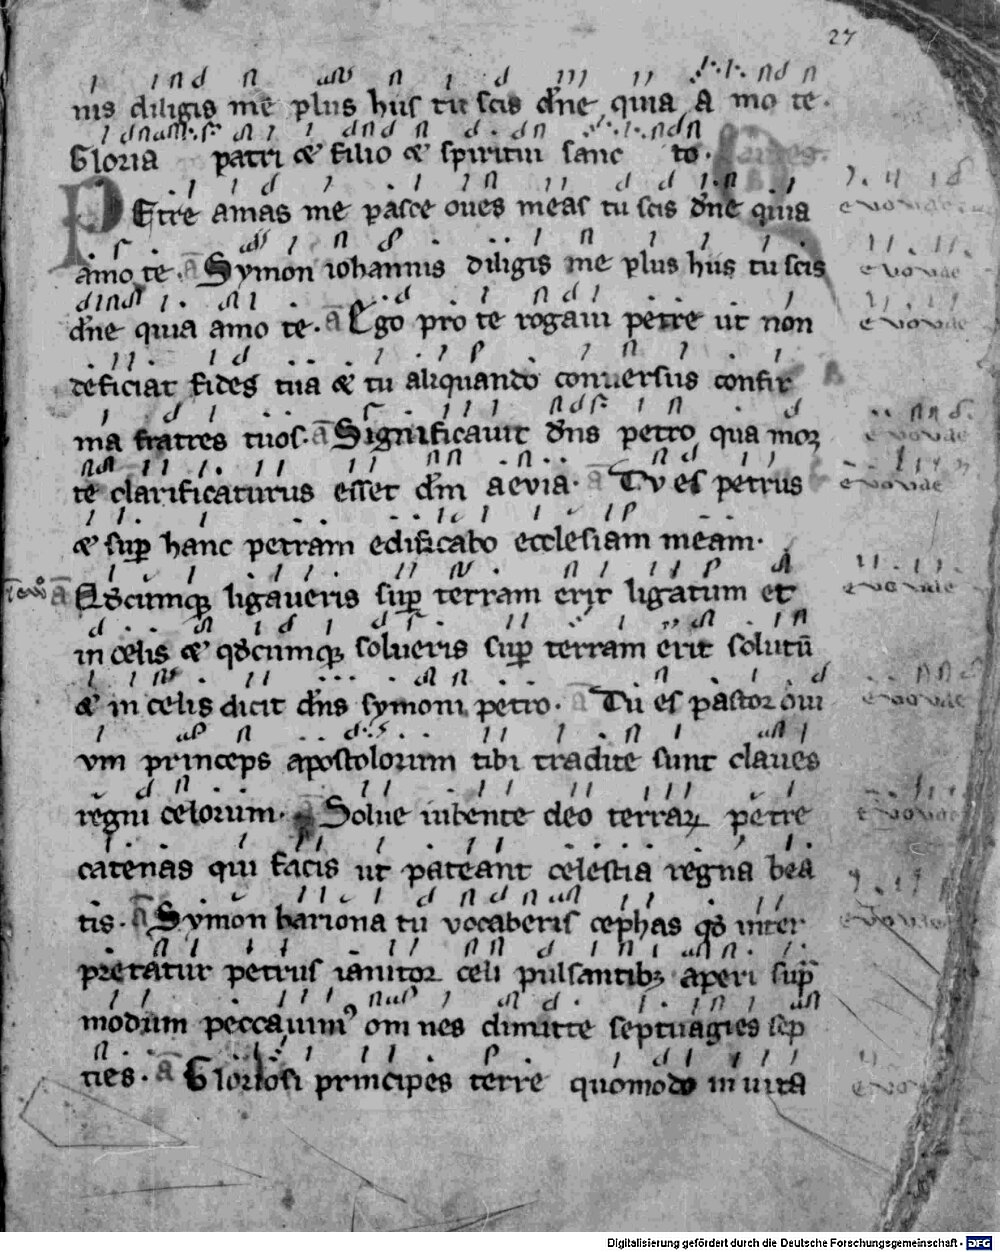 27
nis diligis me plus hus tu scis dn̄e quia a mo te.
Gloria patri & filio & spiritui sanc to.
PEtre amas me pasce oues meas tu scis dn̄e quia euouae
amo te. a Symon iohannis diligis me plus hus tu scis euouae
dn̄e quia amo te. a Ego pro te rogaui petre ut non euouae
deficiat fides tua & tu aliquando conuersus confir
ma fratres tuos. a Significauit dn̄s petro qua morꝫ euouae
te clarificaturus esset dm̄ aevia. a Tv es petrus euouae
& sup̄ hanc petram edificabo ecclesiam meam.
a Qdcumqꝫ ligaueris sup̄ terram erit ligatum et euouae
in celis & qdcumqꝫ solueris sup̄ terram erit solutū
& in celis dicit dn̄s symoni petro. a Tu es pastor oui euouae
vm princeps apostolorum tibi tradite sunt claues
regni celorum. a Solue iubente deo terraꝝ petre euouae
catenas qui facis ut pateant celestia regna bea
tis. a Symon bariona tu vocaberis cephas qd inter euouae
pretatur petrus ianitor celi pulsantibꝫ aperi sup̄
modum peccauimꝰ om nes dimitte septuagies sep
ties. a Gloriosi principes terre quomodo in uita euouae
Digitalisierung gefördert durch die Deutsche Forschungsgemeinschaft - DFG